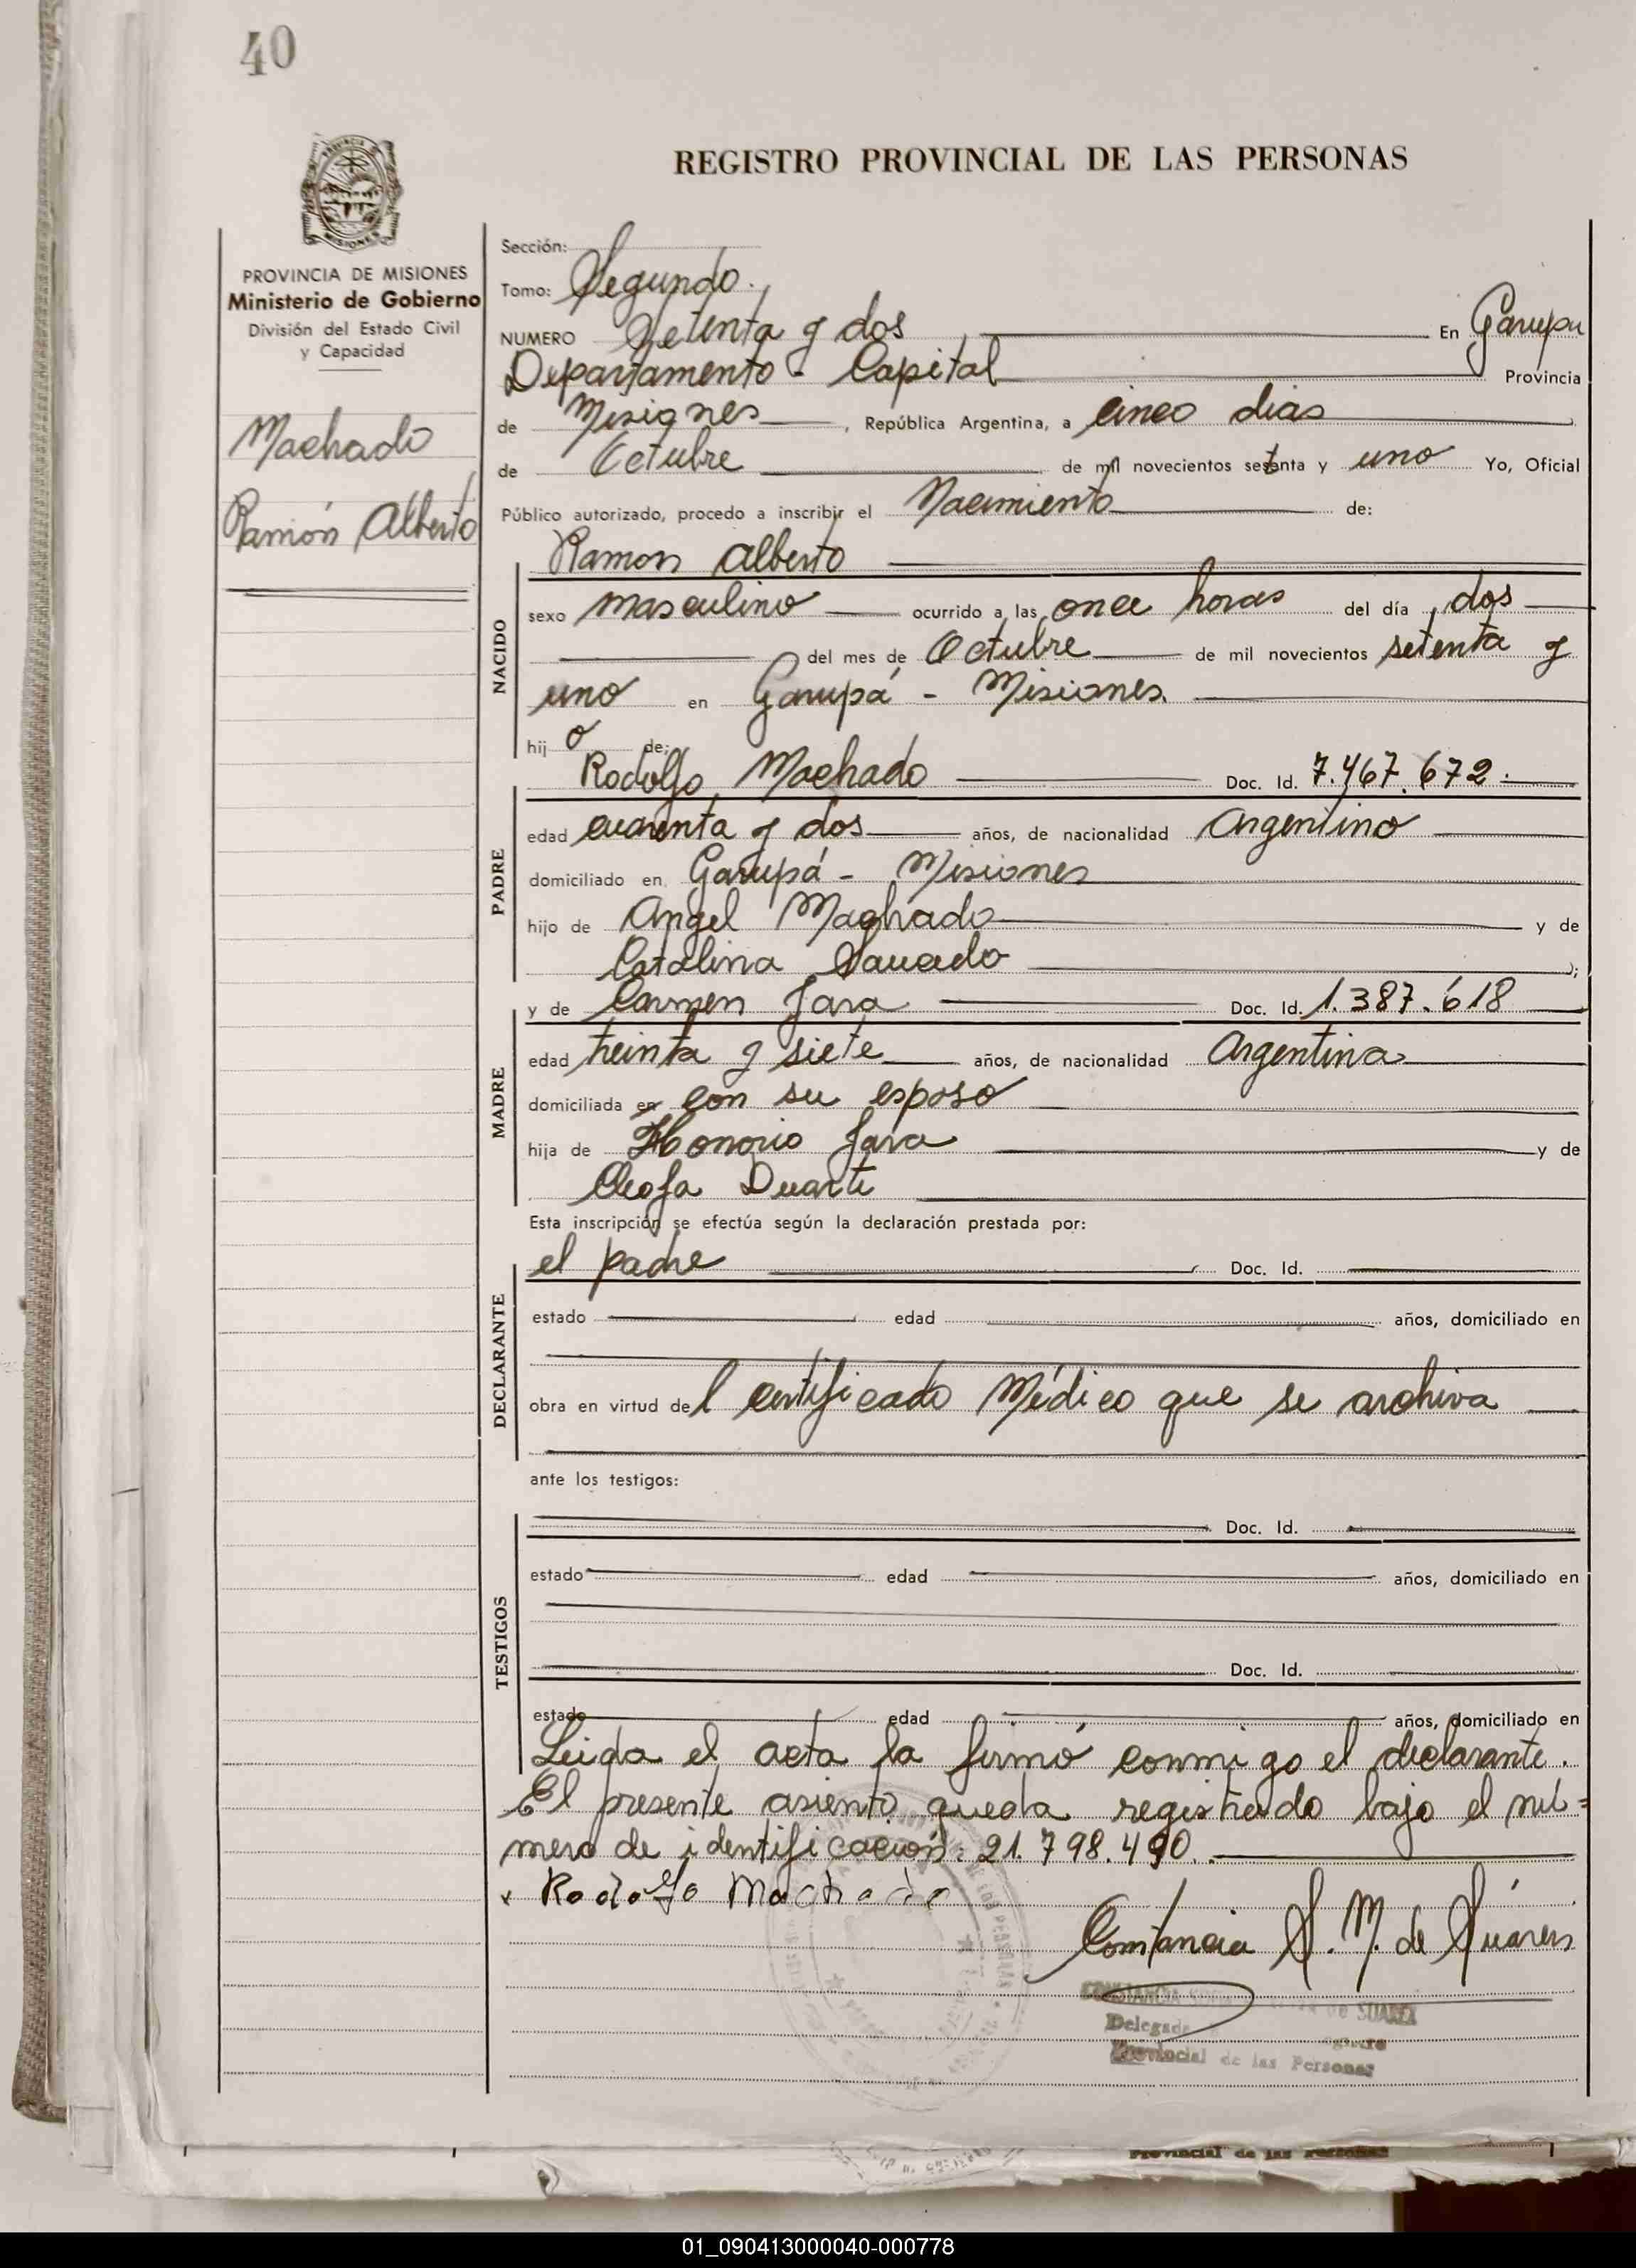 40
REGISTRO PROVINCIAL DE LAS PERSONAS
MISIONES
PROVINCIA DE MISIONES
Ministerio de Gobierno
División del Estado Civil
y Capacidad
Machado
Ramón Alberto
Sección:
Tomo: Segundo.
NUMERO Setenta y dos En Garupa
Departamento - Capital Provincia
de Misiones, República Argentina, a cinco dias
de Octubre de mil novecientos setenta y uno Yo, Oficial
Público autorizado, procedo a inscribir el Nacimiento de:
Ramon Alberto
NACIDO
sexo masculino ocurrido a las once horas del día dos
del mes de Octubre de mil novecientos setenta y
uno en Garupá - Misiones.
hijo de:
Rodolfo Machado Doc. Id. 7.467.672.
PADRE
edad cuarenta y dos años, de nacionalidad Argentino
domiciliado en Garupá - Misiones
hijo de Angel Machado y de
Catalina
y de Carmen Jara Doc. Id. 1.387.618
MADRE
edad treinta y siete años, de nacionalidad Argentina
domiciliada en con su esposo
hija de Honorio Jara y de
Cleofa Duarte
Esta inscripción se efectúa según la declaración prestada por:
el padre Doc. Id.
DECLARANTE
estado edad años, domiciliado en
obra en virtud del certificado Médico que se archiva
ante los testigos:
Doc. Id.
TESTIGOS
estado edad años, domiciliado en
Doc. Id.
estado edad años, domiciliado en
Leida el acta la firmó conmigo el declarante.
El presente asiento queda registrado bajo el nú=
mero de identificación: 21.798.490.
x Rodolfo Machado
Constancia S. M. de Suárez
CONSTANCIA de SUAREZ
Provincial de las Personas
Provincial de las Personas
01_090413000040-000778